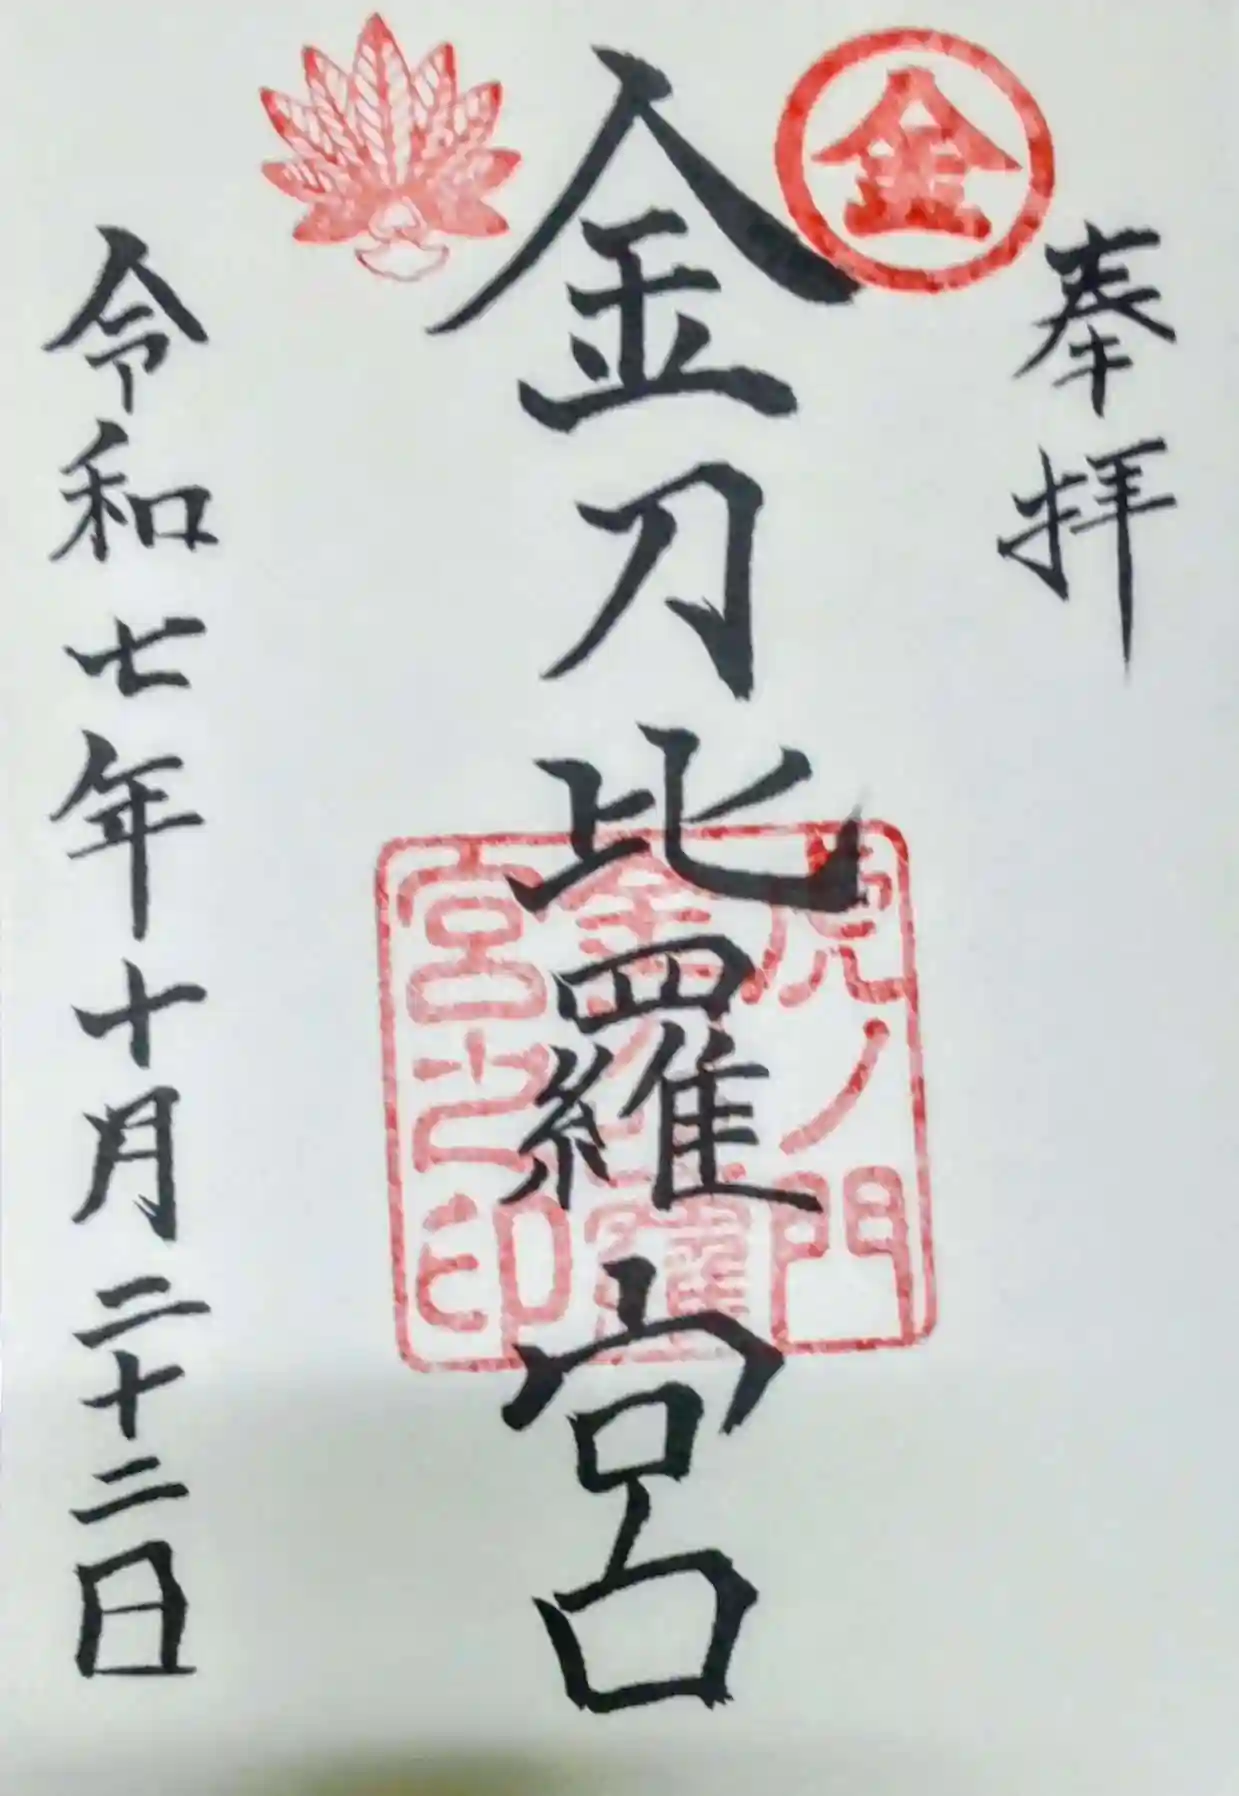 奉拝
金
金刀比羅宮
虎ノ門
金刀比羅
宮之印
令和七年十月二十二日